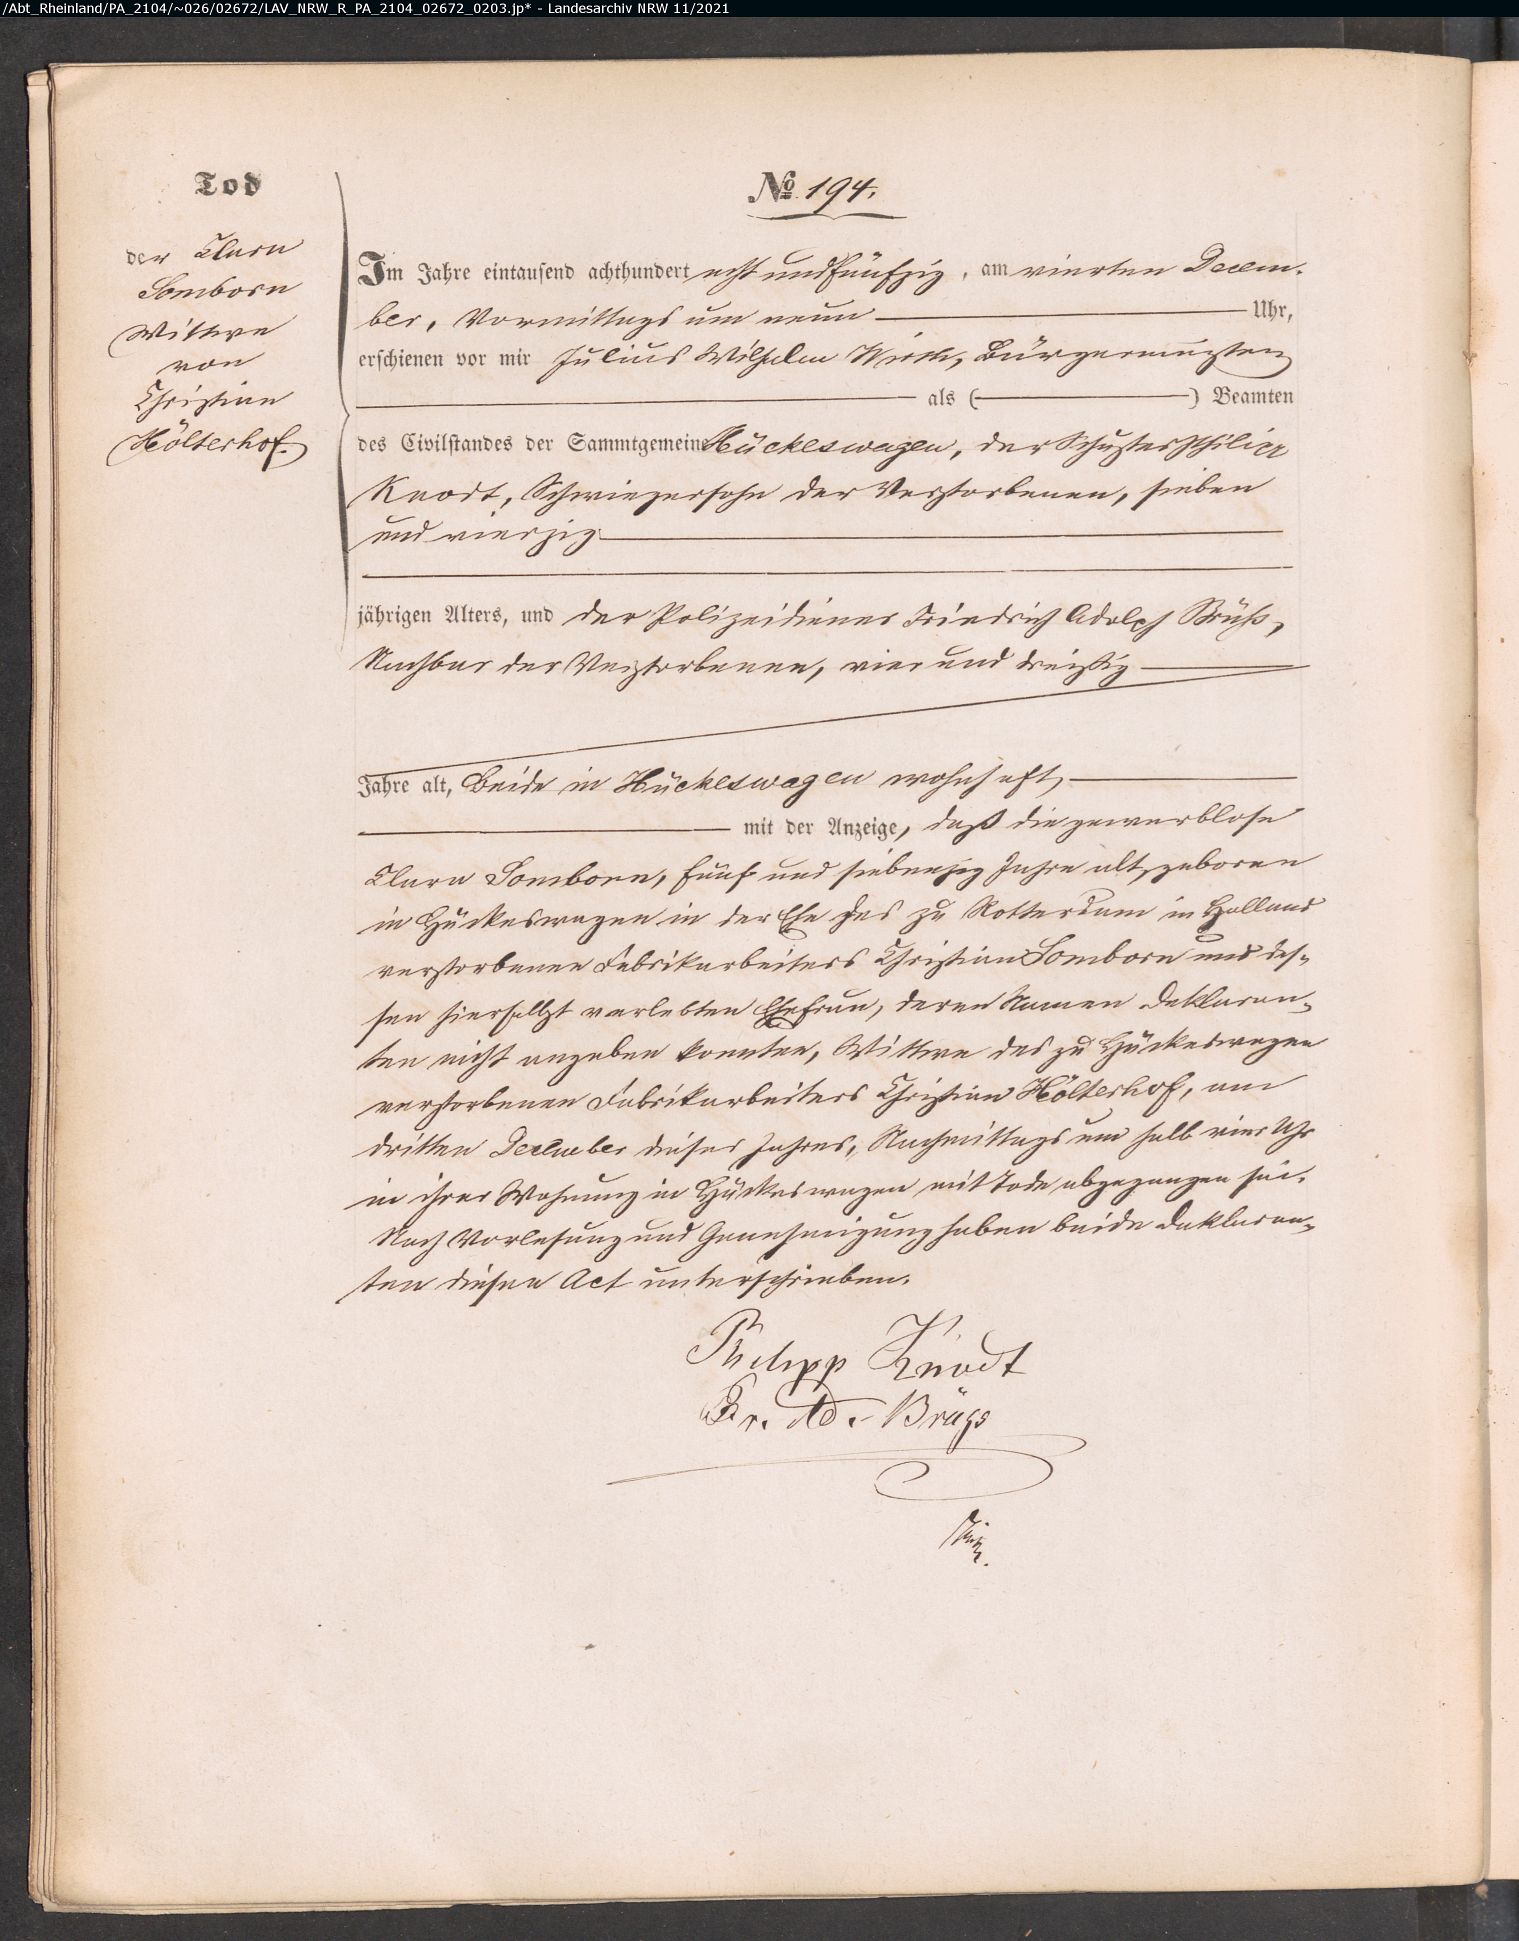 /Abt_Rheinland/PA_2104/~026/02672/LAV_NRW_R_PA_2104_02672_0203.jp* - Landesarchiv NRW 11/2021
Tod
der Clara
Somborn
Wittwe
von
Christian
Hölterhof.
№ 194.
Im Jahre eintausend achthundert acht und fünfzig, am vierten Decem-
ber, Vormittags um neun Uhr,
erschienen vor mir Julius Wilhelm Wirth, Bürgermeister
als ( ) Beamten
des Civilstandes der Sammtgemeine Hückeswagen, der Schuster Philipp
Knodt, Schwiegersohn der Verstorbenen, sieben
und vierzig
jährigen Alters, und der Polizeidiener Friedrich Adolph
Nachbar der Verstorbenen, vier und dreißig
Jahre alt, beide in Hückeswagen wohnhaft,
mit der Anzeige, daß die gewerblose
Clara Somborn, fünf und siebenzig Jahre alt, geboren
in Hückeswagen in der Ehe des zu Rotterdam in Holland
verstorbenen Fabrikarbeiters Christian Somborn und des-
sen hierselbst verlebten Ehefrau, deren Namen Deklaran-
ten nicht angeben konnten, Wittwe des zu Hückeswagen
verstorbenen Fabrikarbeiters Christian Hölterhof, am
dritten December dieses Jahres, Nachmittags um halb vier Uhr
in ihrer Wohnung in Hückeswagen mit Tode abgegangen sei.
Nach Vorlesung und Genehmigung haben beide Deklaran-
ten diesen Act unterschrieben.
Philipp Knodt
Fr. Ad.